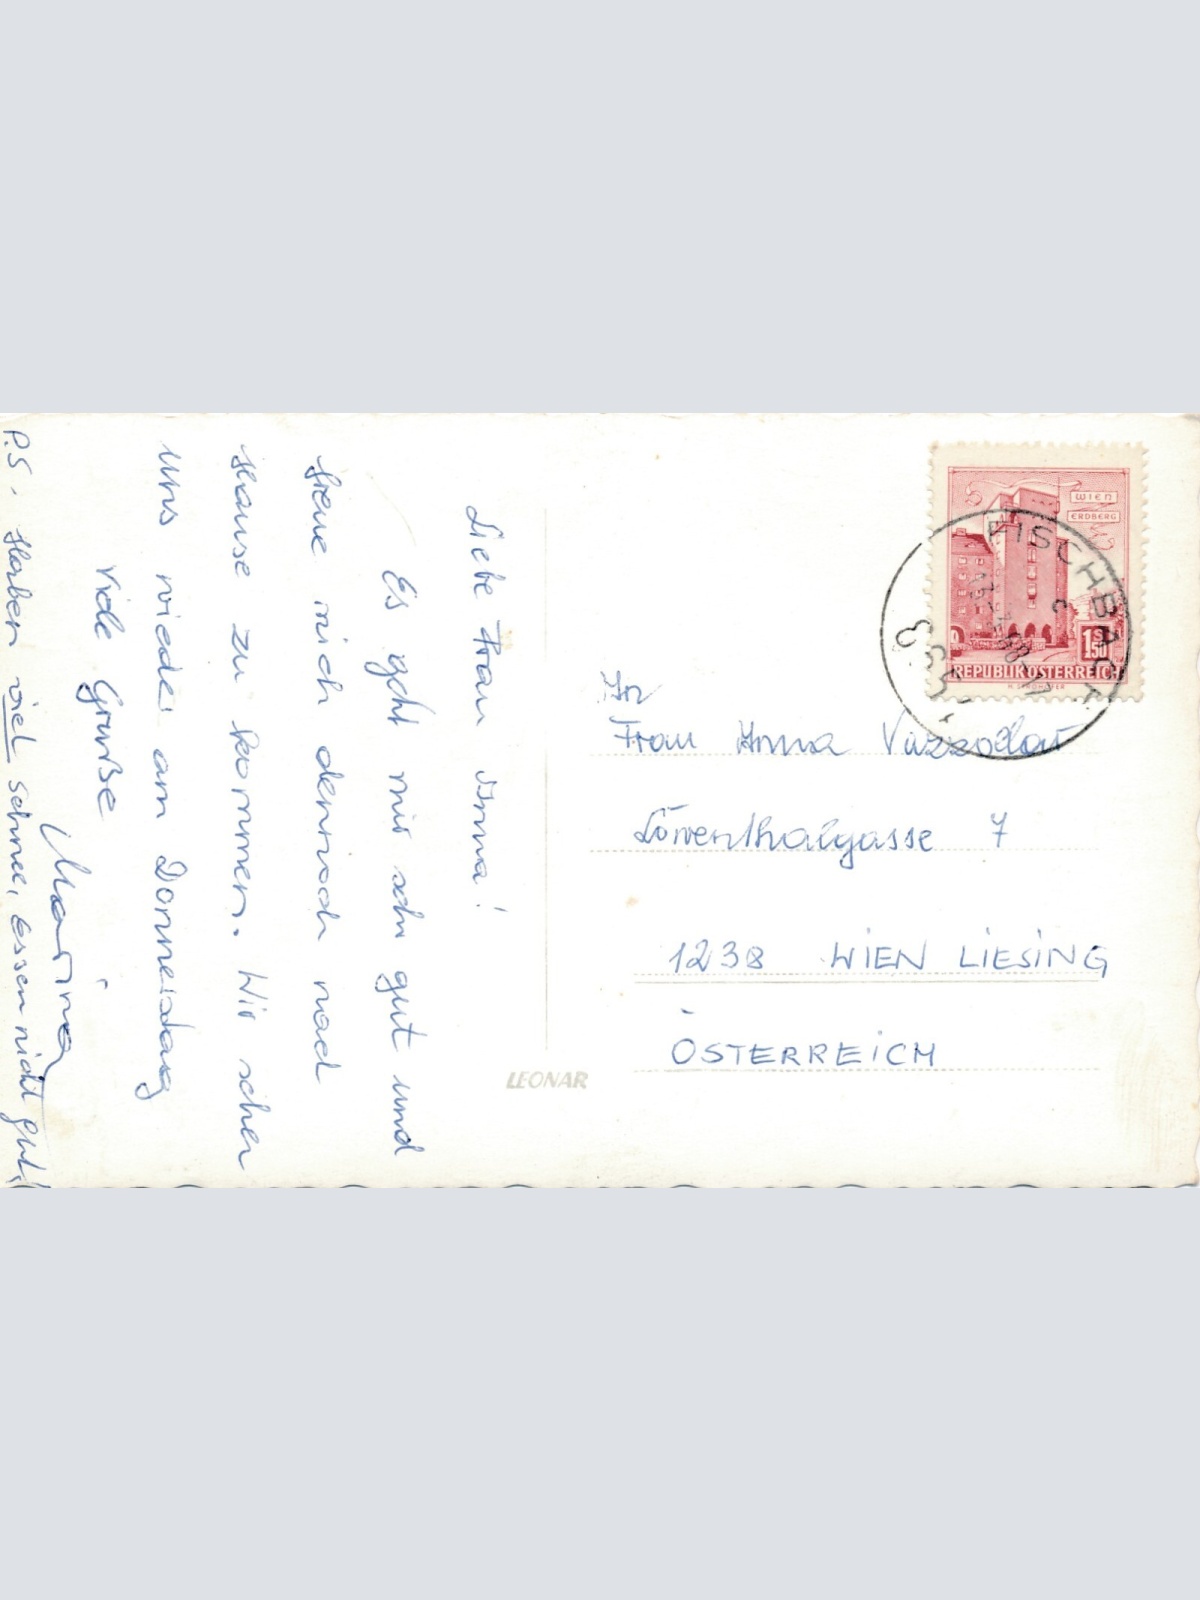 Liebe Frau Irma!
Es geht mir sehr gut und
freue mich dennoch nach
Hause zu kommen. Wir sehen
uns wieder am Donnerstag
Viele Grüße
Marina
P.S. Haben viel Schnee, Essen nicht gut!
WIEN
ERDBERG
S
1 50
REPUBLIK ÖSTERREICH
FISCHBACH
An
Frau Irma
Löwenthalgasse 7
1238 WIEN LIESING
ÖSTERREICH
LEONAR